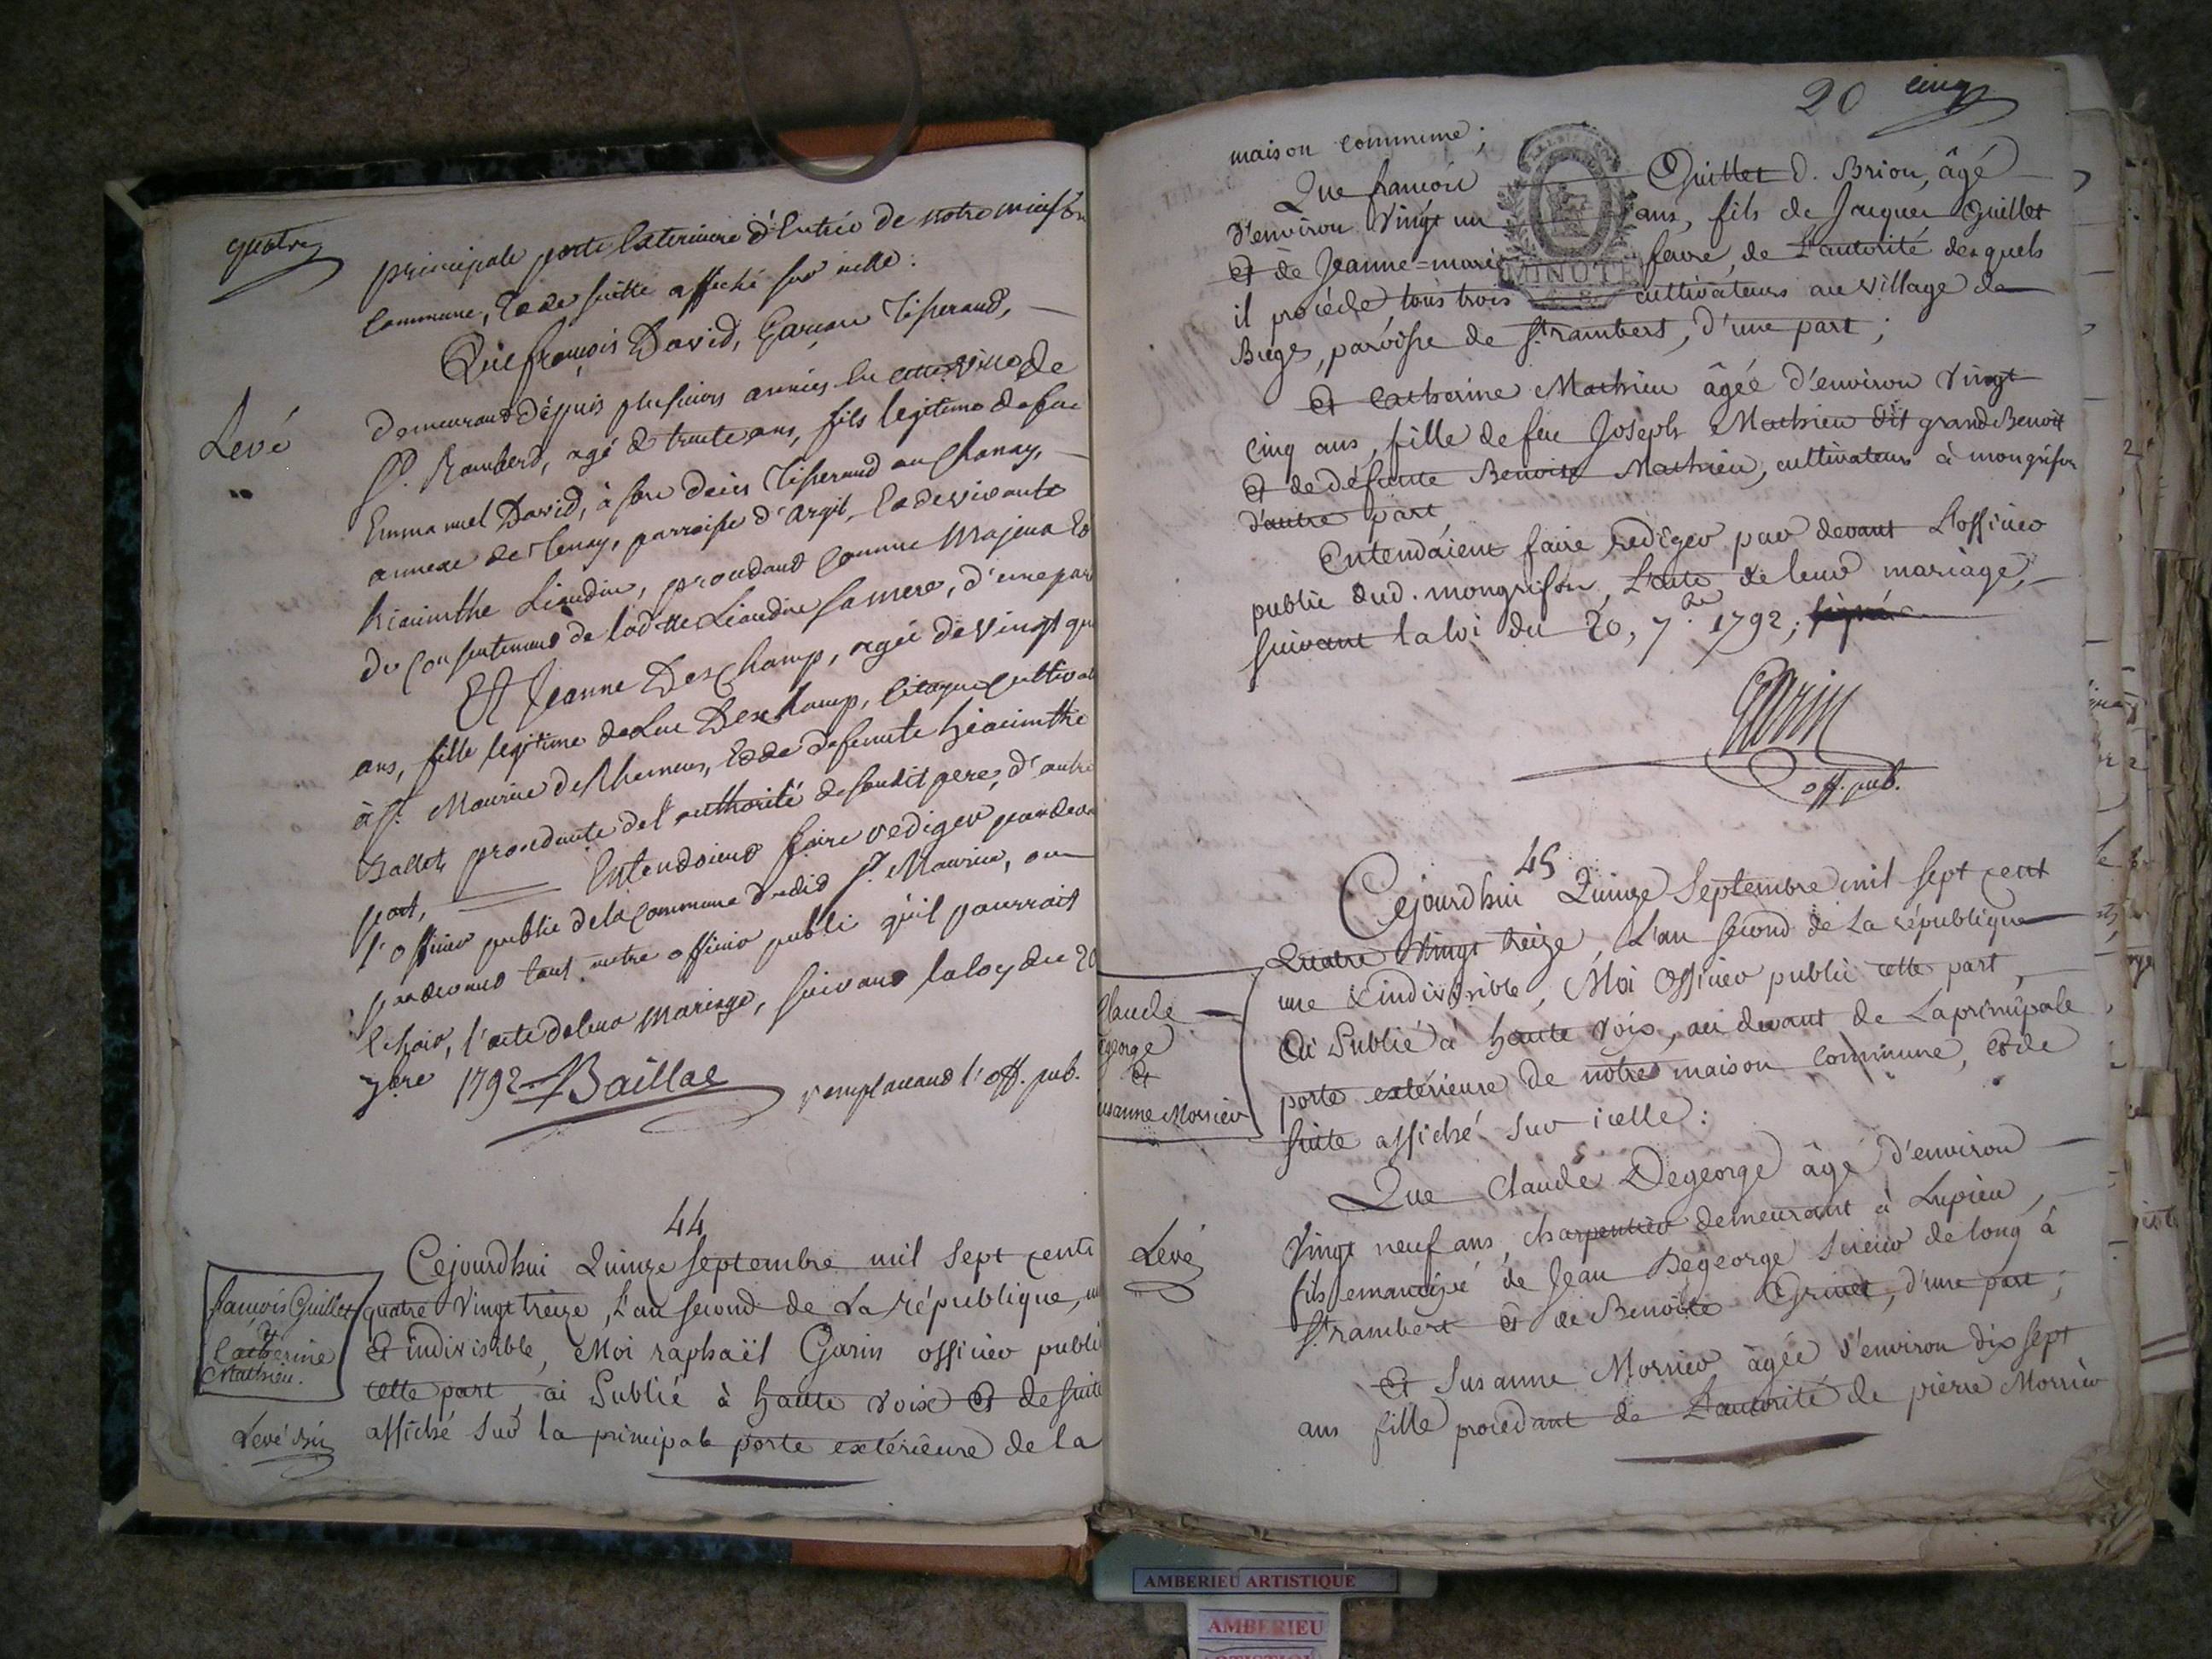 quatre
principale porte Exterieure d'Entrée de notre maison
commune, Et de suitte affiché sur icelle.
Que françois David, Garçon Tisserand,
Levé
demeurant dépuis plusieurs années En cette ville de
St. Rambert, agé de trente ans, fils legitime de feu
Emmanuel David, à son deces Tisserand au Chanay,
annexe de tenay, parroisse d'argit, Et de vivante
hiacinthe Liaudin, procedant comme Majeur Et
du consentement de ladtte Liaudin sa mere, d'une part
Et Jeanne Deschamp, agée de vingt qu
ans, fille legitime de Luc Deschamp, citoyen cultivat
à St. Maurice de Rhemens, Et de defunte hiacinthe
Ballet, procedante de l'authorité de sondit pere, d'autre
part, Entendoient faire rediger pardevan
l'officier public de la commune dudit St. Maurice, ou
pardevant tout autre officier public qu'il pourrait
Echoir, l'acte de leur Mariage, suivant la loy du 20
7bre 1792 Baillac remplacant l'off. pub.
44
Cejourdhui Quinze septembre mil sept cents
françois Guillet
Et
Catherine
Mathieu.
quatre vingt treize, L'an second de La république, un
Et indivisible, Moi raphaël Garin officier public
cette part, ai Publié à haute voix Et de suite
Levé
affiché sur la principale porte extérieure de la
20 cinq
maison commune;
Que francois Guillet d. Brion, âgé
d'environ vingt un ans, fils de Jacques Guillet
Et de Jeanne=marie favre, de L'autorité desquels
MINUTE
il procéde, tous trois cultivateurs au village de
Buges, paroisse de St. rambert, d'une part;
Et Catherine Mathieu âgée d'environ vingt
cinq ans, fille de feu Joseph Mathieu dit grand Benoit
Et de défunte Benoite Mathieu, cultivateurs à mongrifon
d'autre part
Entendaient faire rediger par devant L'officier
public dud. mongrifon, L'acte de leur mariage,
suivant la loi du 20, 7.bre 1792;
Garin
off. pub.
45
Cejourdhui Quinze Septembre mil sept cent
Quatre vingt treize, L'an second de La république
une & indivisible, Moi Officier public cette part,
Claude
george
Et
usanne Morrier
ai Publié à haute voix, au devant de La principale
porte extérieure de notre maison commune, Et de
suite affiché sur icelle:
Que Claude Degeorge âgé d'environ
Levé
vingt neuf ans, charpentier demeurant à Lupieu,
fils emancipé de Jean Degeorge scieur de long à
St. rambert Et de Benoite Grinet, d'une part;
Et Susanne Morrier âgée d'environ dix sept
ans fille procédant de L'autorité de pierre Morrier
AMBERIEU ARTISTIQUE
AMBERIEU
ARTISTIQUE